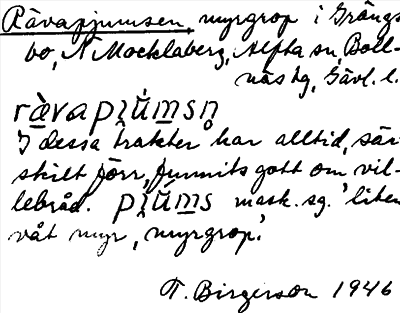 Rävapjumsen, myrgrop i Grängs-
bo, N Mocklaberg, Alfta sn, Boll-
näs tg, Gävl. l.
I dessa trakter har alltid, sär-
skilt förr, funnits gott om vil-
lebråd. mask. sg. 'liten
våt myr, myrgrop.'
T. Birgerson 1946